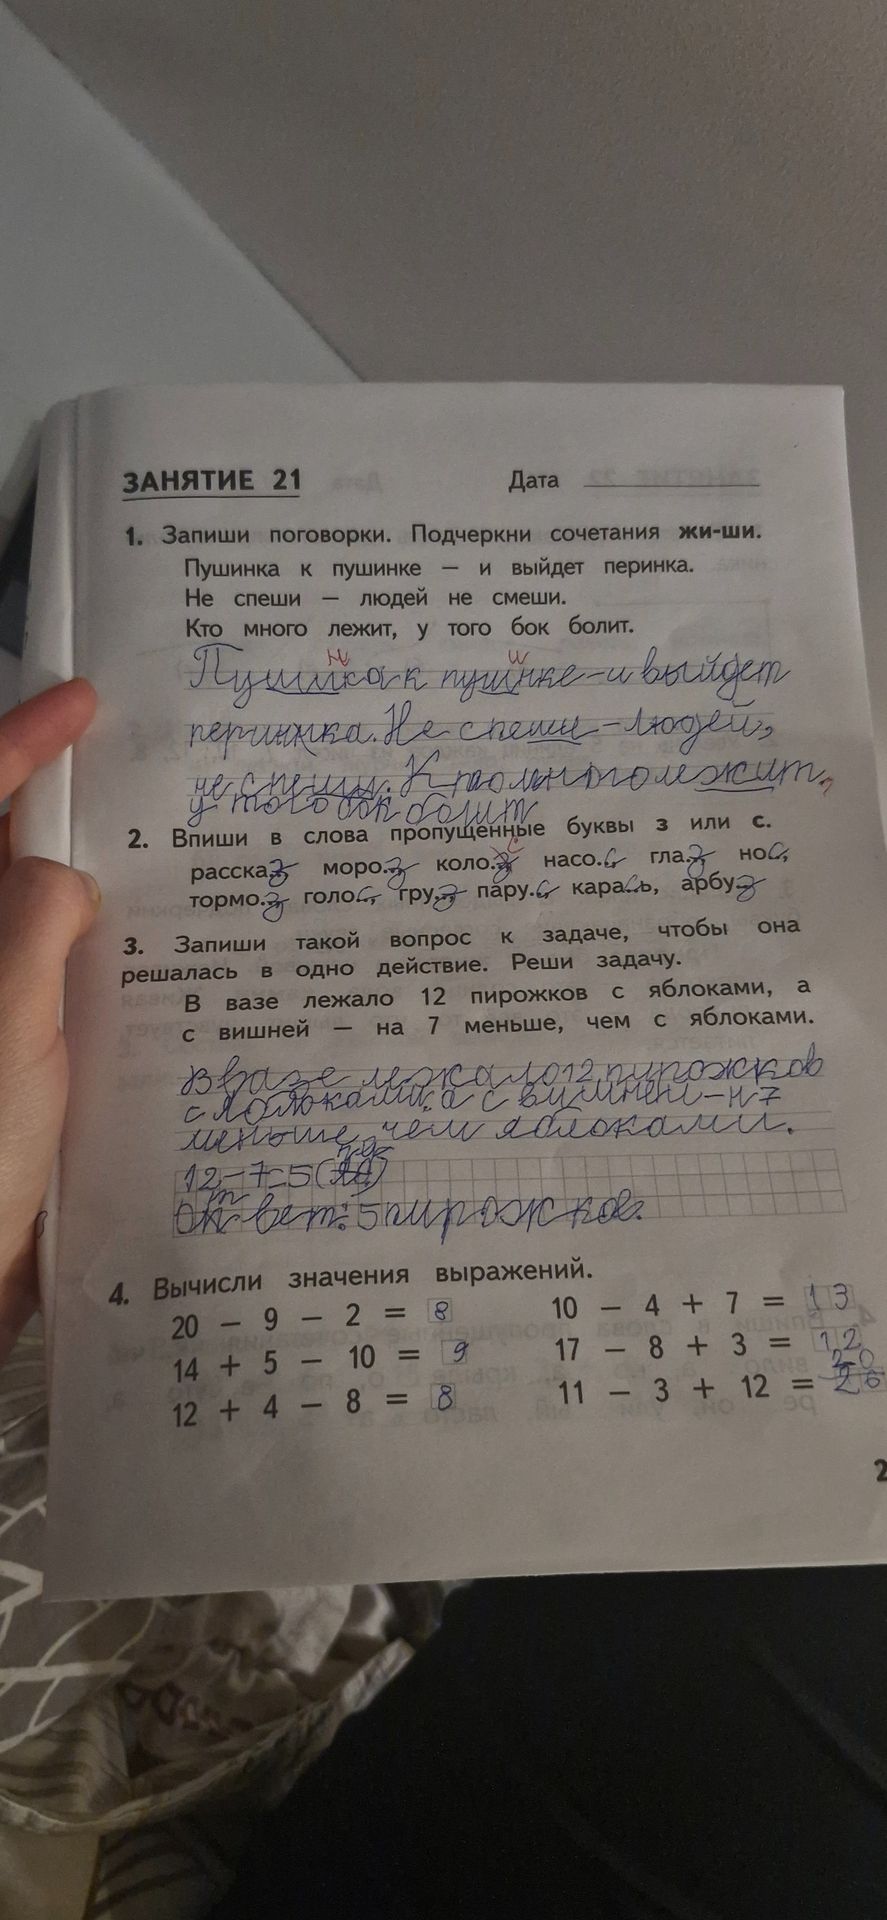 ЗАНЯТИЕ 21 Дата
1. Запиши поговорки. Подчеркни сочетания жи-ши.
Пушинка к пушинке — и выйдет перинка.
Не спеши — людей не смеши.
Кто много лежит, у того бок болит.
и и
Пушинка к пушинке - и выйдет
перинка. Не спеши - людей,
не спеши. Кто много лежит,
у того бок болит
2. Впиши в слова пропущенные буквы з или с.
с
рассказ, мороз, колоз, насос, глаз, нос,
тормоз, голос, груз, парус, карась, арбуз
3. Запиши такой вопрос к задаче, чтобы она
решалась в одно действие. Реши задачу.
В вазе лежало 12 пирожков с яблоками, а
с вишней — на 7 меньше, чем с яблоками.
В вазе лежало 12 пирожков
с яблоками, а с вишней - н 7
меньше, чем яблоками.
12-7=5
Ответ: 5 пирожков.
4. Вычисли значения выражений.
20 - 9 - 2 = 8 10 - 4 + 7 = 13
14 + 5 - 10 = 9 17 - 8 + 3 = 12
20
12 + 4 - 8 = 8 11 - 3 + 12 =
2